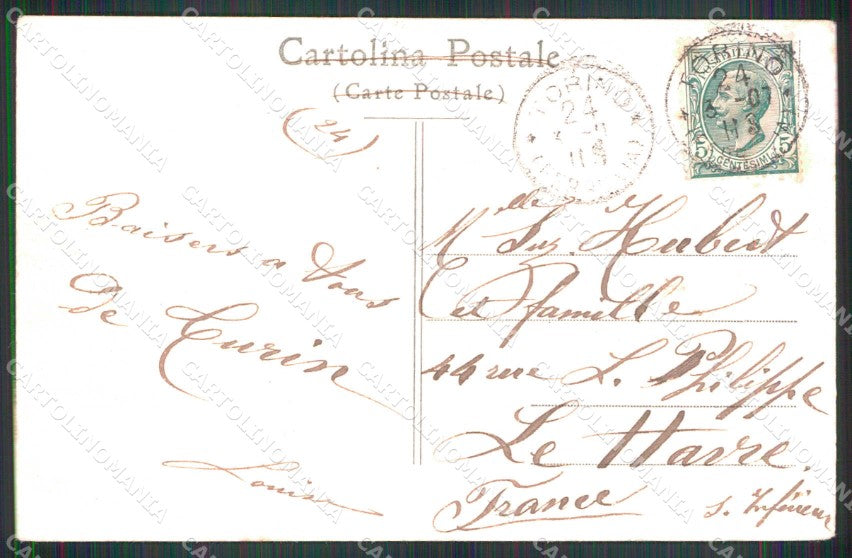 Cartolina Postale
(Carte Postale)
(24)
TORINO
24
3 - 07
11 S
TORINO
24
11 S
5 CENTESIMI 5
Baisers a tous
de Turin
Louise
Mlle Suz. Hubert
et famille
44 rue L. Philippe
Le Havre.
France
S. Inférieure
CARTOLINOMANIA